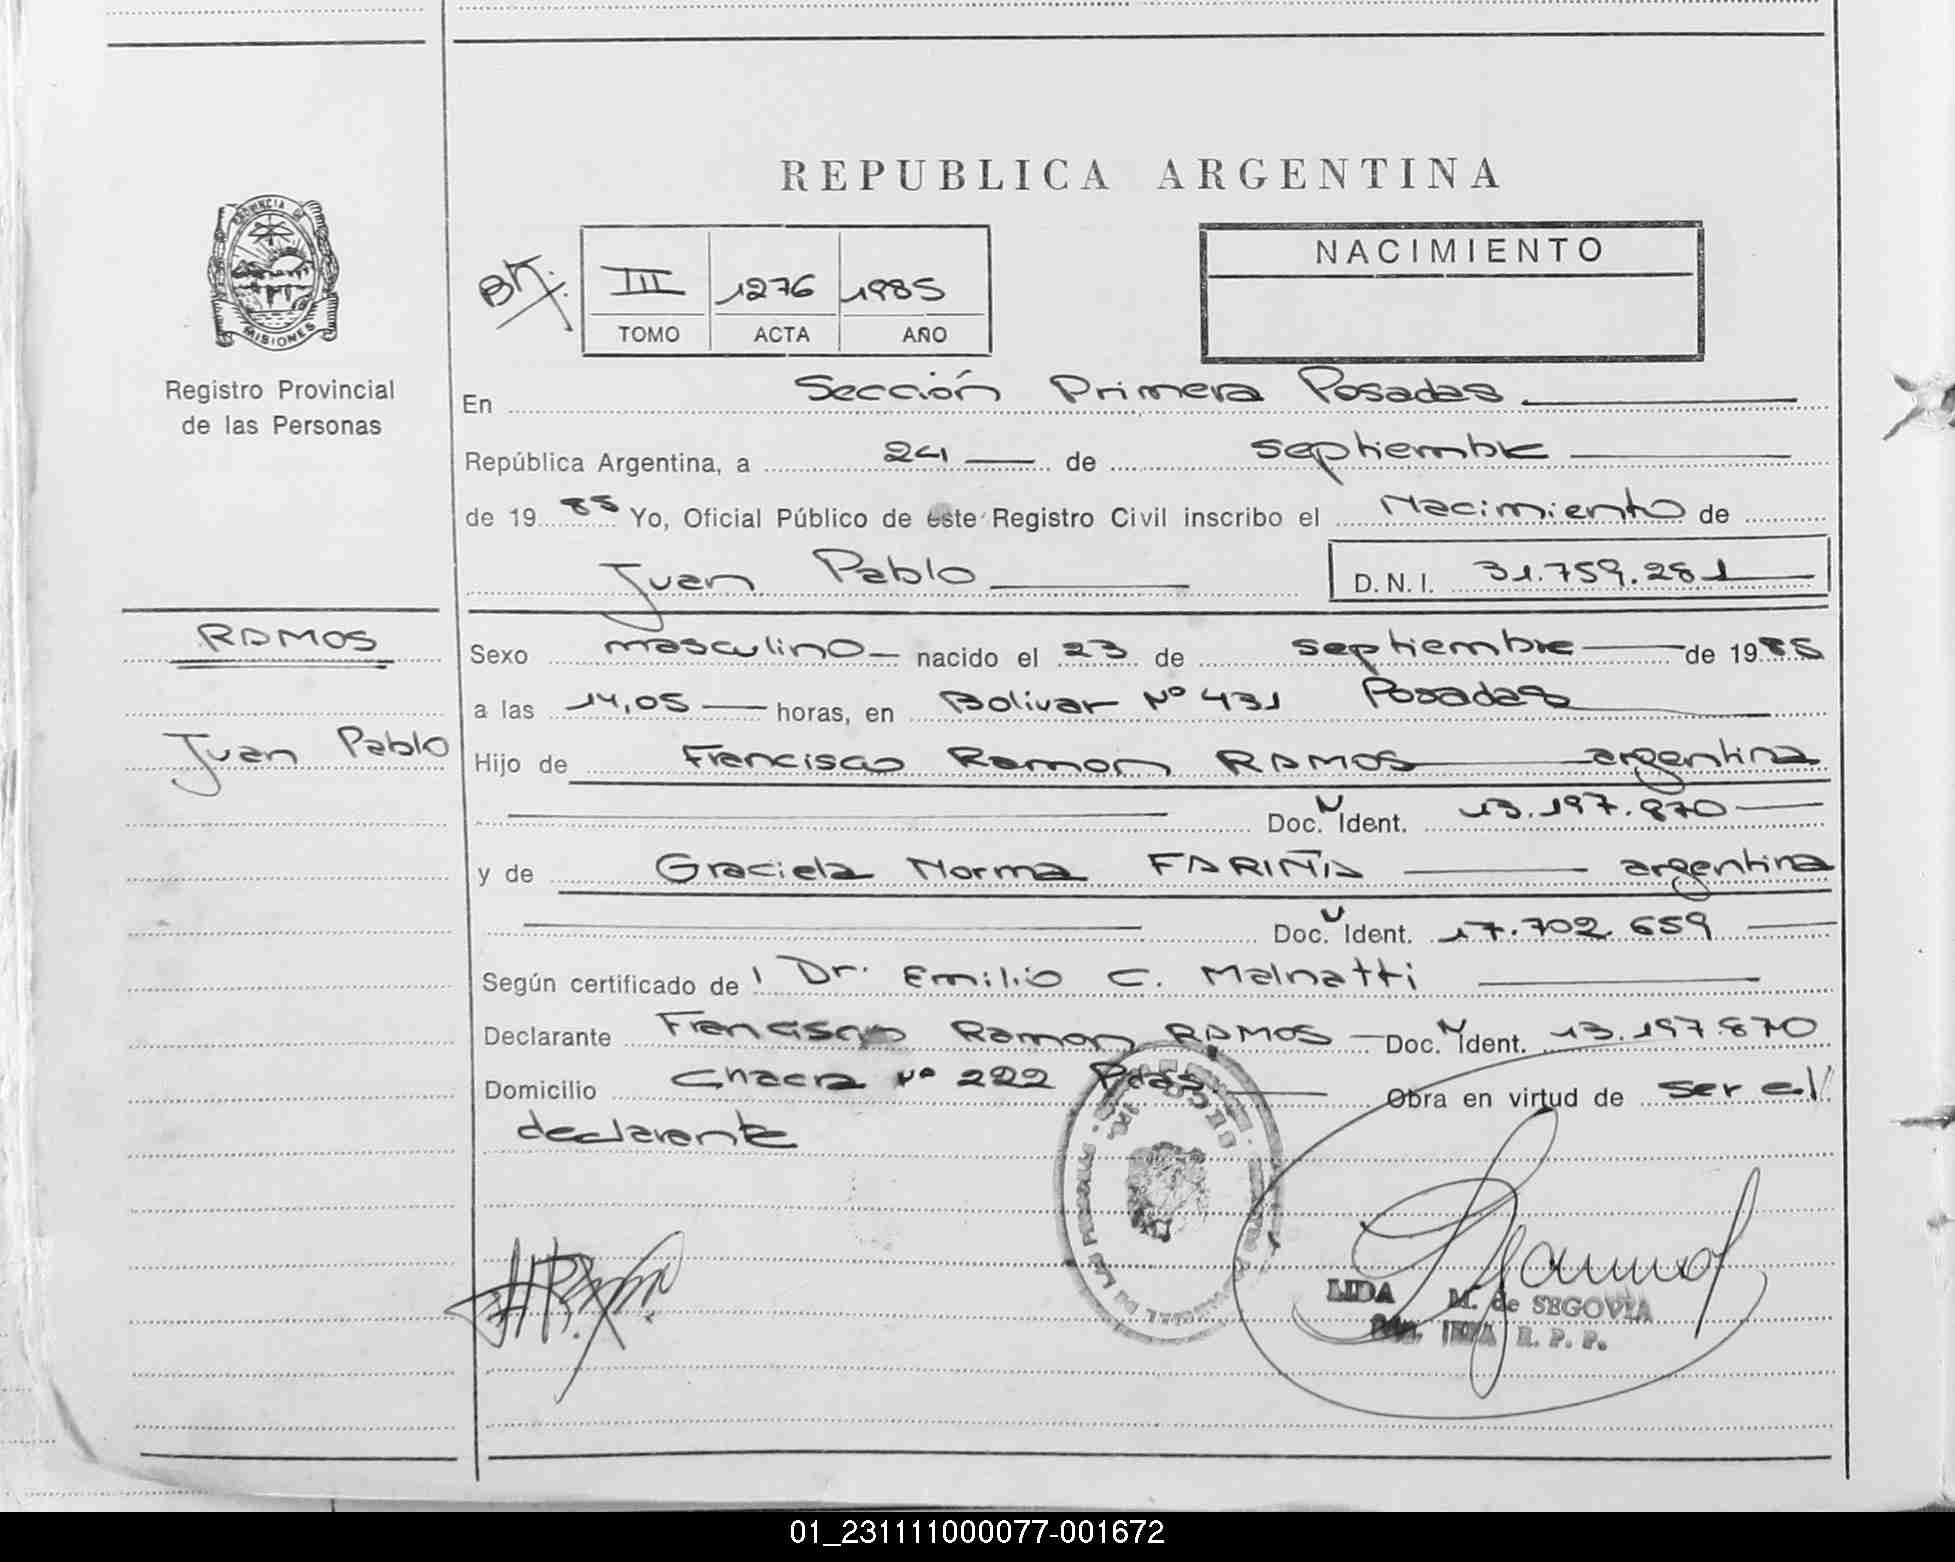 REPUBLICA ARGENTINA
PROVINCIA DE
MISIONES
Registro Provincial
de las Personas
III 1276 1985
TOMO ACTA AÑO
NACIMIENTO
En Sección Primera Posadas
República Argentina, a 24 de septiembre
de 1985 Yo, Oficial Público de este Registro Civil inscribo el Nacimiento de
Juan Pablo D.N.I. 31.759.281
RAMOS
Juan Pablo
Sexo masculino nacido el 23 de septiembre de 1985
a las 14,05 horas, en Bolivar Nº 431 Posadas
Hijo de Francisco Ramon RAMOS argentina
Doc. Ident. 13.197.870
y de Graciela Norma FARIÑA argentina
Doc. Ident. 17.702.659
Según certificado de Dr. Emilio C. Malnatti
Declarante Francisco Ramon RAMOS Doc. Ident. 13.197.870
Domicilio Chacra Nº 222 Pdas. Obra en virtud de ser el
declarante
LIDA M. de SEGOVIA
R. P. P.
01_231111000077-001672